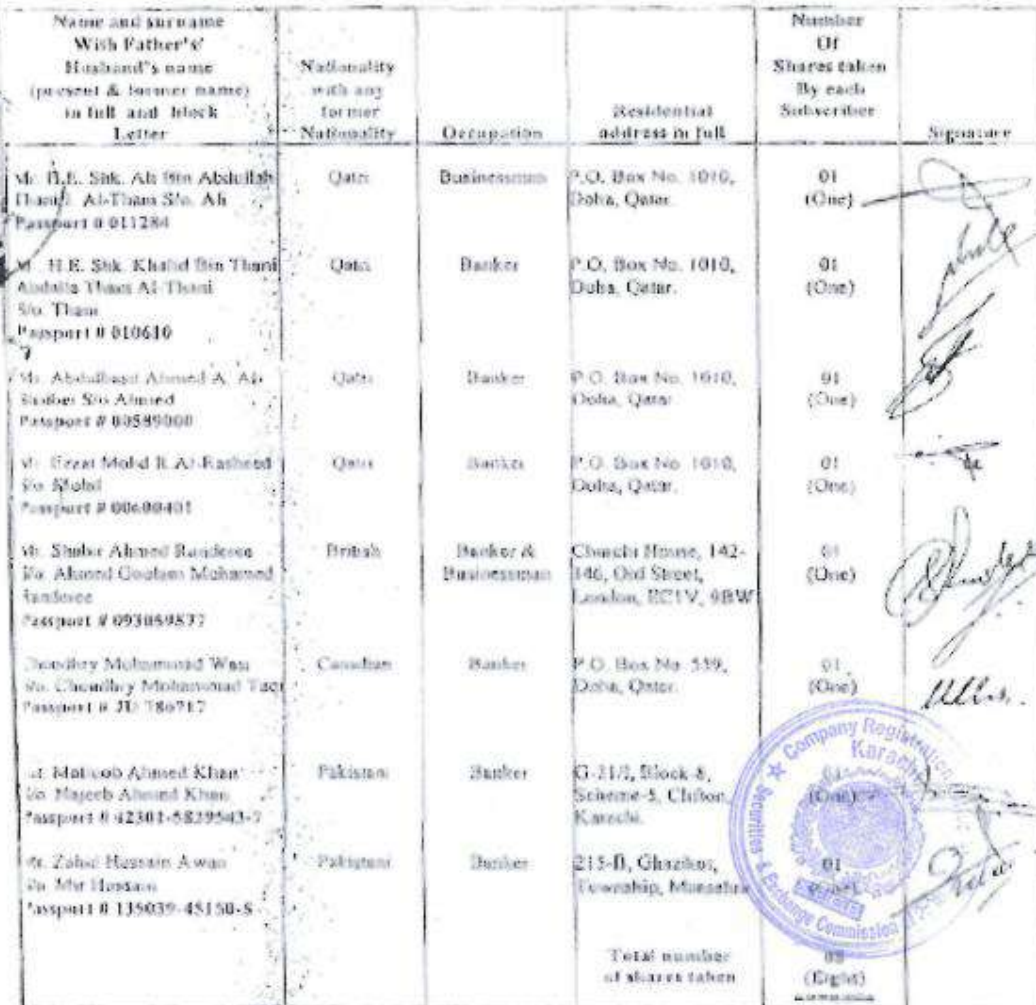 Name and surname
With Father's/
Husband's name
(present & former name)
in full and block
Letter
Nationality
with any
former
Nationality
Occupation
Residential
address in full
Number
Of
Shares taken
By each
Subscriber
Signature
Mr. H.E. Shk. Ali Bin Abdullah
Al-Thani S/o. Ali
Passport # 011284
Qatri
Businessman
P.O. Box No. 1010,
Doha, Qatar.
01
(One)
H.E. Shk. Khalid Bin Thani
Abdulla Thani Al-Thani
S/o. Thani
Passport # 010610
Qatri
Banker
P.O. Box No. 1010,
Doha, Qatar.
01
(One)
Mr. Abdulbasit Ahmed A. Al-
S/o Ahmed
Passport # 00589000
Qatri
Banker
P.O. Box No. 1010,
Doha, Qatar
01
(One)
Mr. Mohd R. Al-Rasheed
S/o Mohd
Passport # 00600401
Qatri
Banker
P.O. Box No. 1010,
Doha, Qatar.
01
(One)
Mr. Shabir Ahmed Randeree
S/o. Ahmed Goolam Mohamed
Randeree
Passport # 093059877
British
Banker &
Businessman
House, 142-
146, Old Street,
London, EC1V, 9BW
01
(One)
Choudhry Mohammad Wasi
S/o. Choudhry Mohammad Taqi
Passport #
Canadian
Banker
P.O. Box No. 559,
Doha, Qatar.
01
(One)
Ahmed Khan
S/o. Najeeb Ahmed Khan
Passport # 42301-5829543-7
Pakistani
Banker
G-21/2, Block-8,
Scheme-5, Clifton,
Karachi.
01
(One)
Mr. Zahid Hussain Awan
S/o. Mir Hussain
Passport # 135039-45150-8
Pakistani
Banker
215-B, Ghazikot,
Township, Mansehra
01
Company Registration
Karachi
Securities & Exchange Commission
Total number
of shares taken
08
(Eight)